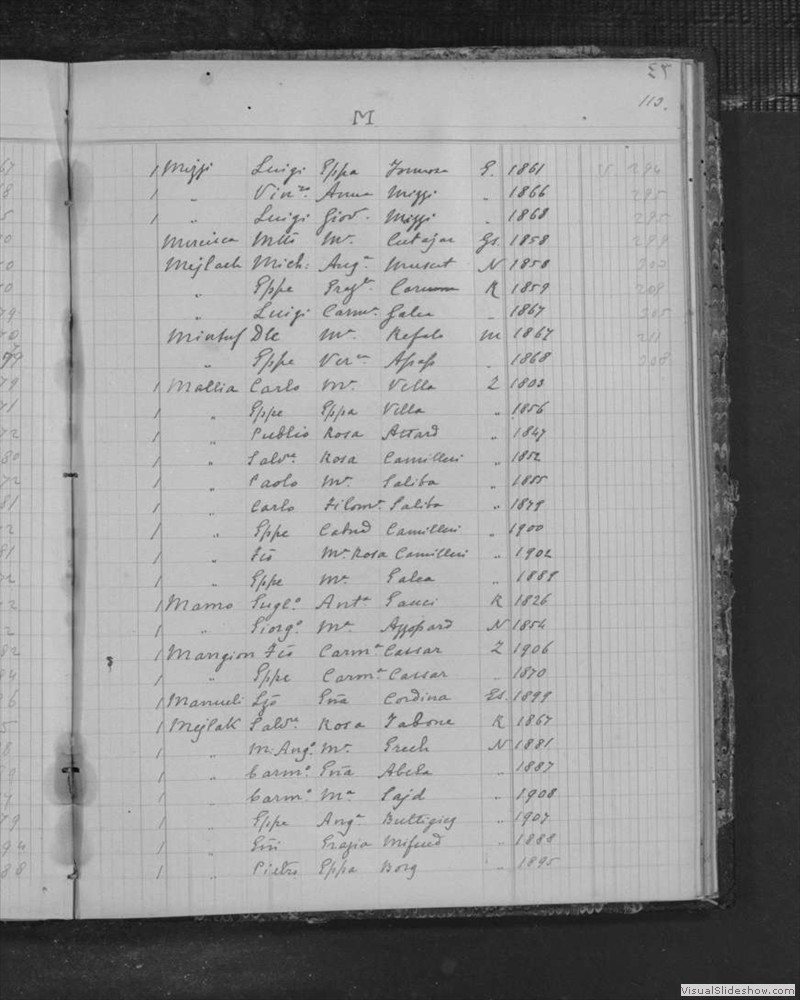 113.
M
1 Mizzi Luigi Eppa Formosa G. 1861 294
1 „ Vinza Anna Mizzi „ 1866 295
1 „ Luigi Giov. Mizzi „ 1868 295
Mercieca Mtto Ma Cutajar Gs. 1858 299
Mejlach Mich: Anga Muscat N 1850 203
„ Eppe 1859 208
„ Luigi Carma Galea „ 1867 205
Mintuf Dle Ma Refalo M 1867 211
„ Eppe „ 1868 208
1 Mallia Carlo Ma Vella Z 1803
1 „ Eppe Eppa Vella „ 1856
1 „ Publio Rosa Attard „ 1847
1 „ Salvre Rosa Camilleri „ 1852
1 „ Paolo Ma Saliba „ 1855
1 „ Carlo Filoma Saliba „ 1879
1 „ Eppe Camilleri „ 1900
1 „ Fco Ma Rosa Camilleri „ 1902
1 „ Eppe Ma Galea „ 1889
1 Mamo Anta Gauci K 1826
1 „ Giorgo Ma Azzopard N 1854
1 Mangion Fco Carma Cassar Z 1906
1 „ Eppe Carma Cassar „ 1870
1 Manueli Cordina Gs. 1899
1 Mejlak Salvre Rosa Tabone K 1867
1 „ M: Ango Ma Grech N 1881
1 „ Carmo Abela „ 1887
1 „ Carmo Ma Sajd „ 1908
1 „ Eppe Anga Buttigieg „ 1907
1 „ Grazia Mifsud „ 1888
1 „ Pietro Eppa Borg „ 1895
VisualSlideshow.com